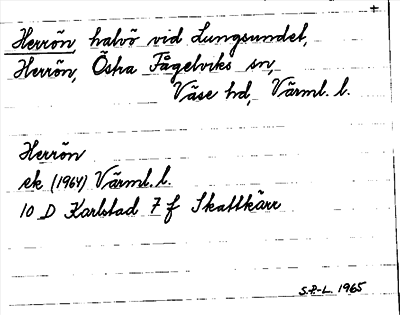 +
Herrön halvö vid Lungsundet,
Herrön, Östra Fågelviks sn,
Väse hd, Värml. l.
Herrön
ek (1964) Värml. l.
10 D Karlstad 7 f Skattkärr
S.P-L. 1965